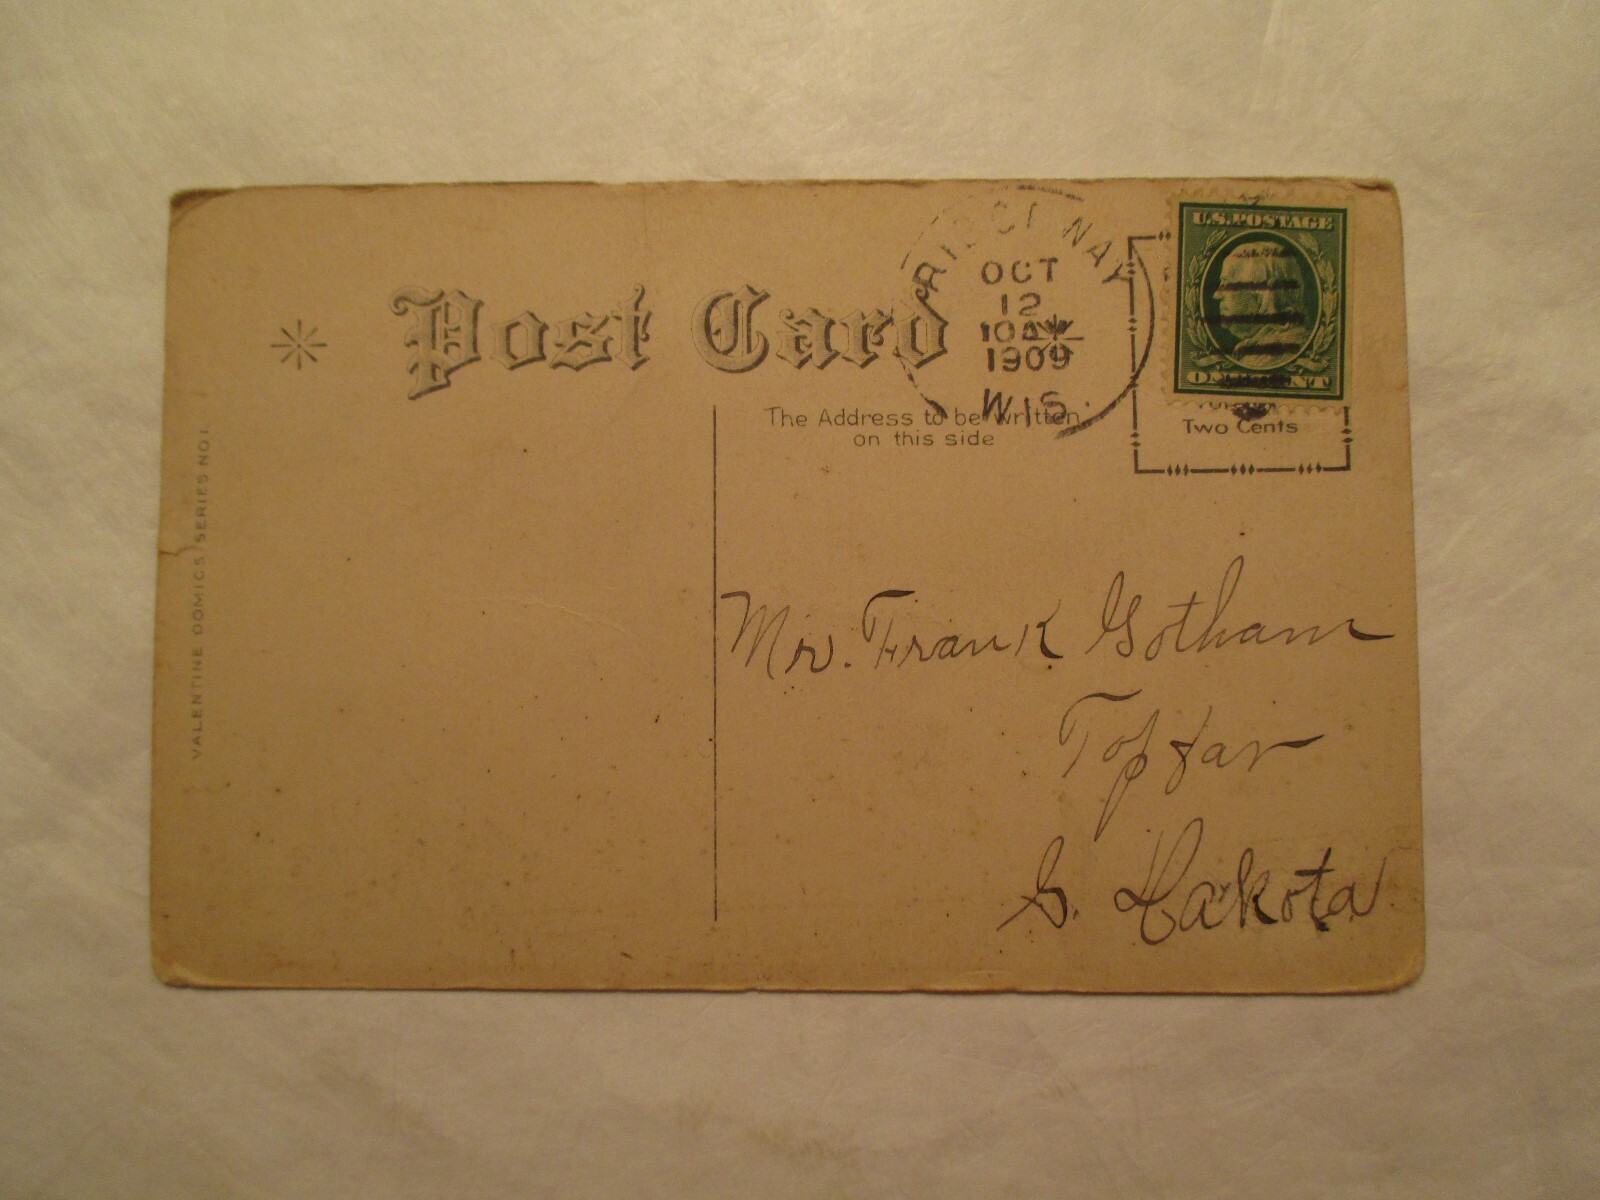 Post Card
RIDGEWAY
OCT
12
10 AM
1909
WIS.
U.S. POSTAGE
ONE CENT
The Address to be written
on this side
Two Cents
VALENTINE DOMICS SERIES NO 1.
Mr. Frank Gotham
S. Dakota